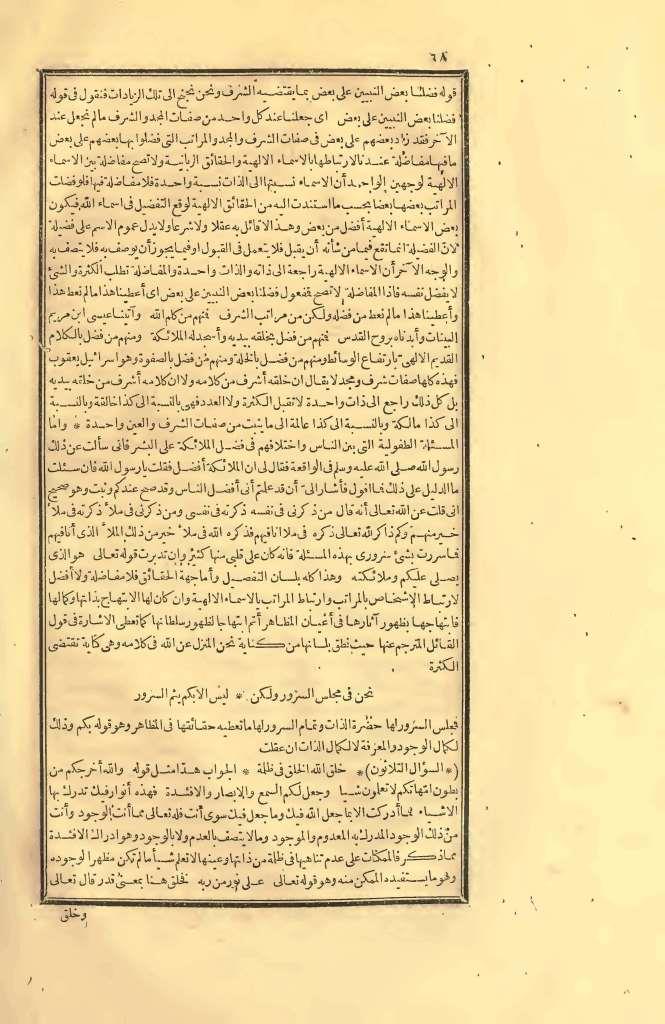 ٦٨
قوله فضلنا بعض النبيين على بعض بما يقتضيه الشرف ونحن نجنح الى تلك الزيادات فنقول فى قوله
فضلنا بعض النبيين على بعض اى جعلنا عند كل واحد من صفات المجد والشرف مالم نجعل عند
الآخر فقد زاد بعضهم على بعض فى صفات الشرف والمجد والمراتب التى فضلوا بها بعضهم على بعض
ما فيها مفاضلة عندنا لارتباطها بالاسماء الالهية والحقائق الربانية ولا تصح مفاضلة بين الاسماء
الالهية لوجهين الواحد أن الاسماء نسبتها الى الذات نسبة واحدة فلا مفاضلة فيها فلو فضلت
المراتب بعضها بعضا بحسب ما استندت اليه من الحقائق الالهية لوقع التفضيل فى اسماء الله فيكون
بعض الاسماء الالهية أفضل من بعض وهذا لا قائل به عقلا ولا شرعا ولا يدل عموم الاسم على فضيلة
لان الفضيلة انما تقع فيما من شأنه أن يقبل فلا يتعمل فى القبول او فيما يجوز أن يوصف به فلا يتصف به
والوجه الآخر أن الاسماء الالهية راجعة الى ذاته والذات واحدة والمفاضلة تطلب الكثرة والشئ
لا يفضل نفسه فاذا المفاضلة لا تصح فمعقول فضلنا بعض النبيين على بعض اى أعطينا هذا مالم نعط هذا
وأعطينا هذا مالم نعط من فضله ولكن من مراتب الشرف فمنهم من كلم الله وآتينا عيسى ابن مريم
البينات وأيدناه بروح القدس فمنهم من فضل بخلقه بيديه وأسجد له الملائكة ومنهم من فضل بالكلام
القديم الالهى بارتفاع الوسائط ومنهم من فضل بالخلة ومنهم من فضل بالصفوة وهو اسرائيل يعقوب
فهذه كلها صفات شرف ومجد لا يقال ان خلقه أشرف من كلامه ولا ان كلامه أشرف من خلقته بيديه
بل كل ذلك راجع الى ذات واحدة لا تقبل الكثرة ولا العدد فهى بالنسبة الى كذا خالقة وبالنسبة
الى كذا مالكة وبالنسبة الى كذا عالمة الى ما ينبت من صفات الشرف والعين واحدة * واما
المسئلة الطفولية التى بين الناس واختلافهم فى فضل الملائكة على البشر فانى سألت عن ذلك
رسول الله صلى الله عليه وسلم فى الواقعة فقال لى ان الملائكة أفضل فقلت يا رسول الله فان سئلت
ما الدليل على ذلك فما اقول فأشار الى أن قد علمتم أنى أفضل الناس وقد صح عندكم وثبت وهو صحيح
انى قلت عن الله تعالى أنه قال من ذكرنى فى نفسه ذكرته فى نفسى ومن ذكرنى فى ملأ ذكرته فى ملأ
خير منهم وكم ذاكر لله تعالى ذكره فى ملأ انا فيهم فذكره الله فى ملأ خير من ذلك الملأ الذى أنا فيهم
فما سررت بشئ سرورى بهذه المسئلة فانه كان على قلبى منها كثير وان تدبرت قوله تعالى هو الذى
يصلى عليكم وملائكته وهذا كله بلسان التفصيل وأما جهة الحقائق فلا مفاضلة ولا أفضل
لارتباط الاشخاص بالمراتب وارتباط المراتب بالاسماء الالهية وان كان لها الابتهاج بذاتها وكمالها
فابتهاجها بظهور آثارها فى أعيان المظاهر أتم ابتهاجا لظهور سلطانها كما تعطى الاشارة فى قول
القائل المترجم عنها حيث نطق بلسانها من كناية نحن المنزل عن الله فى كلامه وهى كناية تقتضى
الكثرة
نحن فى مجلس السرور ولكن * ليس الا بكم يتم السرور
فمجلس السرور لها حضرة الذات وتمام السرور لها ما تعطيه حقائقها فى المظاهر وهو قوله بكم وذلك
لكمال الوجود والمعرفة لا لكمال الذات ان عقلت
(* السؤال الثلاثون)* خلق الله الخلق فى ظلمة * الجواب هذا مثل قوله والله أخرجكم من
بطون امهاتكم لا تعلمون شيا وجعل لكم السمع والابصار والافئدة فهذه أنوار فيك تدرك بها
الاشياء فما أدركت الا بما جعل الله فيك وما جعل فيك سوى أنت فله تعالى مما أنت الوجود وأنت
من ذلك الوجود المدرك به المعدوم والموجود وما لا يتصف بالعدم ولا بالوجود وهو ادراك الافئدة
مما ذكر فالممكنات على عدم تناهيها فى ظلمة من ذاتها وعينها لا تعلم شيأ مالم تكن مظهرا لوجوده
وهو ما يستفيده الممكن منه وهو قوله تعالى على نور من ربه فخلق هنا بمعنى قدر قال تعالى
وخلق